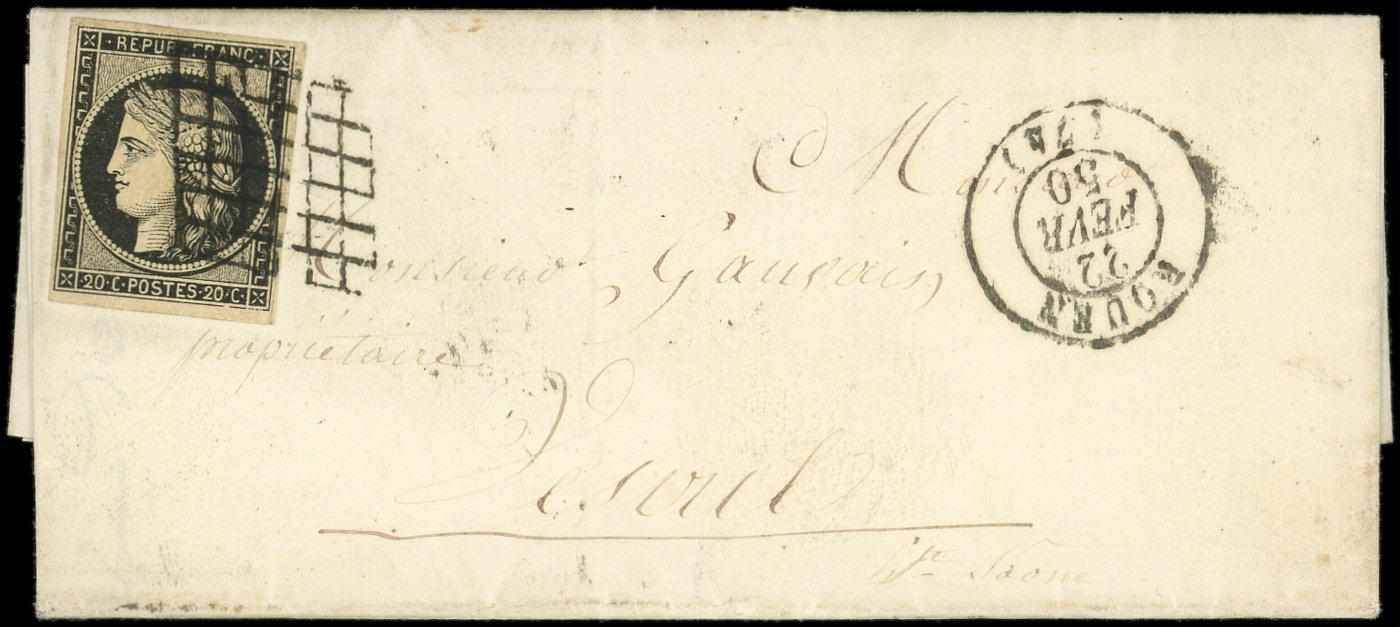 REPUB. FRANC.
20·C·POSTES·20·C
ROUEN (74)
22
FEVR
50
Monsieur
Monsieur Gauvain,
propriétaire
Vesoul
Hte Saone